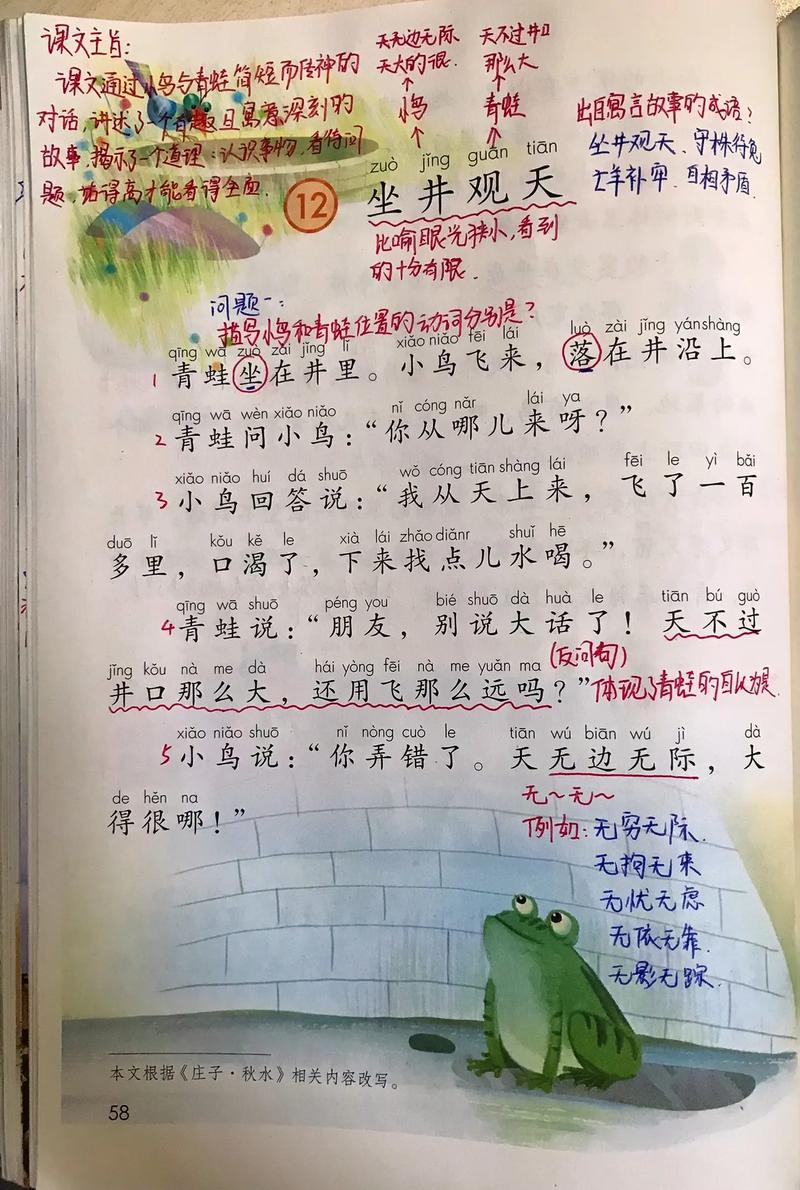 课文主旨：
课文通过小鸟与青蛙简短而传神的
对话，讲述了一个有趣且寓意深刻的
故事，揭示了一个道理：认识事物，看待问
题，站得高才能看得全面．
天无边无际
天大的很．
小鸟
天不过井口
那么大
青蛙
出自寓言故事的成语？
坐井观天、守株待兔
亡羊补牢、自相矛盾．
zuò jǐng guān tiān
12 坐井观天
比喻眼光狭小，看到
的十分有限．
问题一：
描写小鸟和青蛙位置的动词分别是？
qīng wā zuò zài jǐng lǐ xiǎo niǎo fēi lái luò zài jǐng yán shàng
1 青蛙坐在井里。小鸟飞来，落在井沿上。
qīng wā wèn xiǎo niǎo nǐ cóng nǎr lái ya
2 青蛙问小鸟：“你从哪儿来呀？”
xiǎo niǎo huí dá shuō wǒ cóng tiān shàng lái fēi le yì bǎi
3 小鸟回答说：“我从天上来，飞了一百
duō lǐ kǒu kě le xià lái zhǎo diǎnr shuǐ hē
多里，口渴了，下来找点儿水喝。”
qīng wā shuō péng you bié shuō dà huà le tiān bú guò
4 青蛙说：“朋友，别说大话了！天不过
jǐng kǒu nà me dà hái yòng fēi nà me yuǎn ma
井口那么大，还用飞那么远吗？”
（反问句）
体现了青蛙的自以为是．
xiǎo niǎo shuō nǐ nòng cuò le tiān wú biān wú jì dà
5 小鸟说：“你弄错了。天无边无际，大
de hěn na
得很哪！”
无～无～
例如：无穷无际．
无拘无束
无忧无虑
无依无靠．
无影无踪．
本文根据《庄子·秋水》相关内容改写。
58